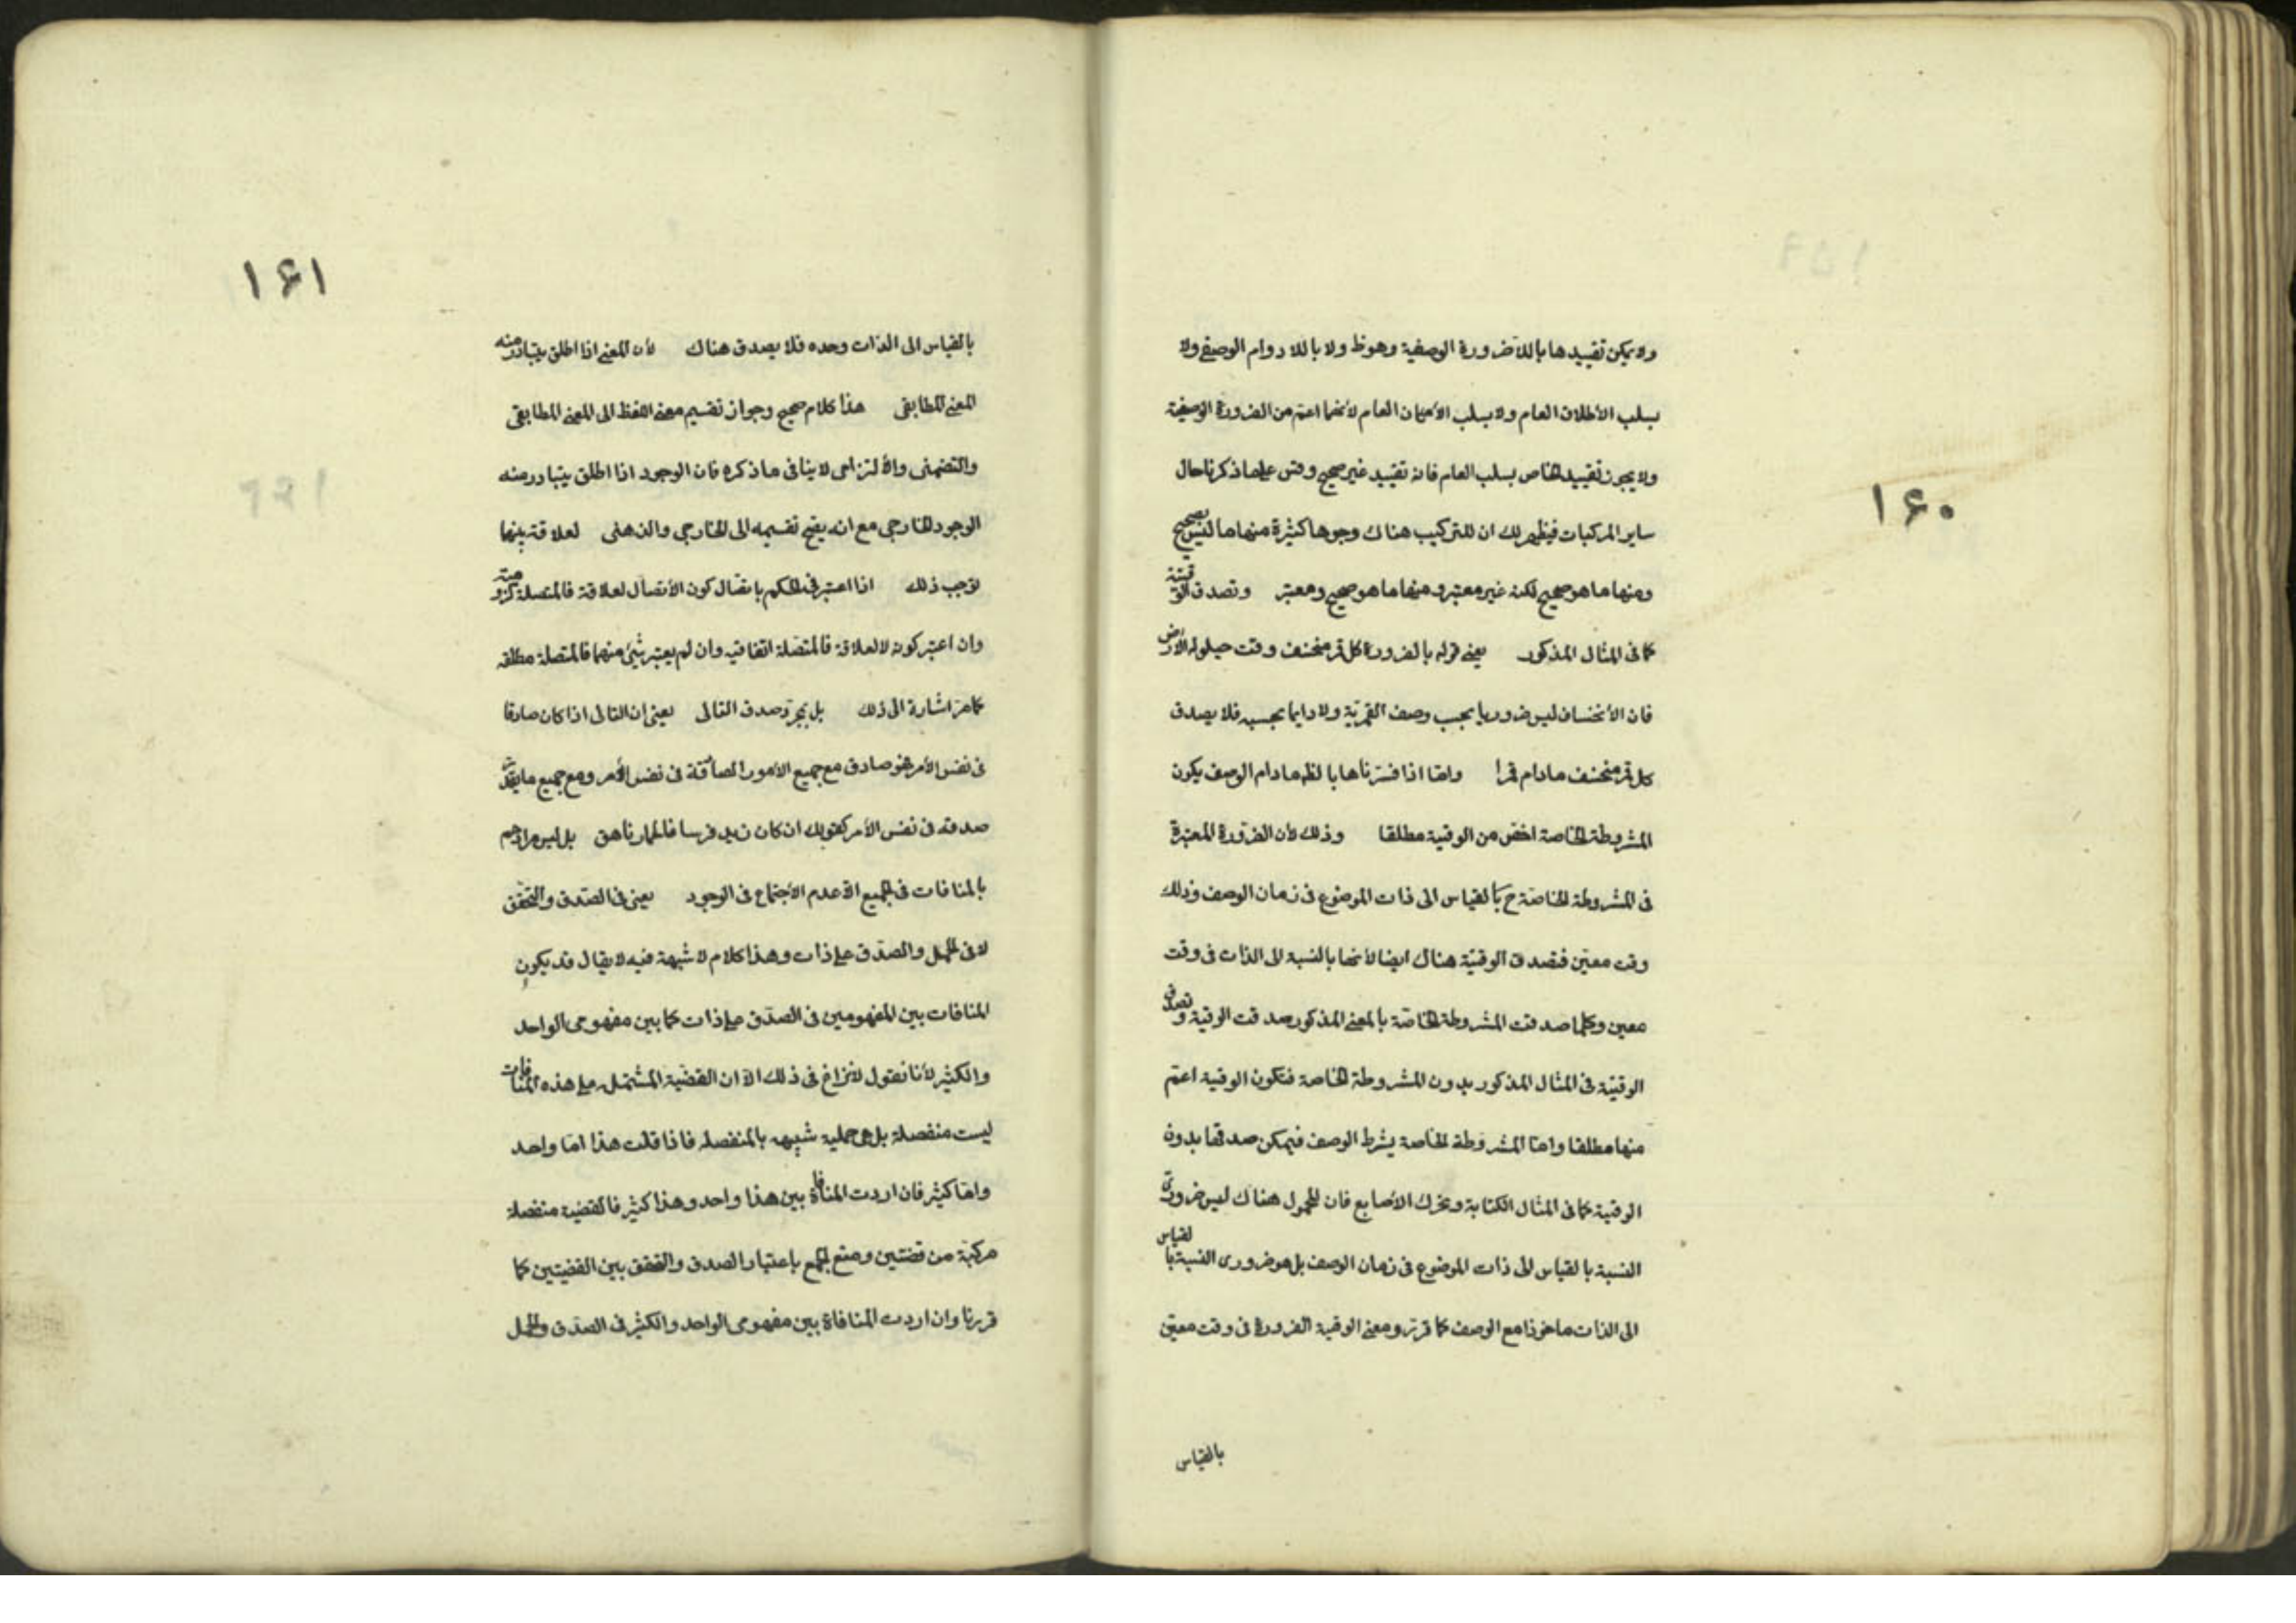 ١٦٠
ولا يمكن تقييدها باللاضرورة الوصفية وهوظ ولا باللا دوام الوصفى ولا
بسلب الأطلاق العام ولا بسلب الأمكان العام لأنهما اعم من الضرورة الوصفية
ولا يجوز تقييد الخاص بسلب العام فانه تقييد غير صحيح وقس على ما ذكرنا حال
ساير المركبات فيظهر لك ان للتركيب هناك وجوها كثيرة منها ما ليس بصحيح
ومنها ما هو صحيح لكنه غير معتبر ومنها ما هو صحيح ومعتبر وتصدق الوقتية
كما فى المثال المذكور يعنى قوله بالضرورة كل قمر منخسف وقت حيلولة الأرض
فان الأنخساف ليس ضروريا بحسب وصف القمرية ولا دايما بحسبه فلا يصدق
كل قمر منخسف مادام قمرا واما اذا فسرناها بالضرورة مادام الوصف يكون
المشروطة الخاصة اخص من الوقتية مطلقا وذلك لأن الضرورة المعتبرة
فى المشروطة الخاصة ح بالقياس الى ذات الموضوع فى زمان الوصف وذلك
وقت معين فتصدق الوقتية هناك ايضا لأنها بالنسبة الى الذات فى وقت
معين وكلما صدقت المشروطة الخاصة بالمعنى المذكور صدقت الوقتية وتصدق
الوقتية فى المثال المذكور بدون المشروطة الخاصة فتكون الوقتية اعم
منها مطلقا واما المشروطة الخاصة بشرط الوصف فيمكن صدقها بدون
الوقتية كما فى المثال الكتابة وتحرك الأصابع فان المحمول هناك ليس ضرورى
النسبة بالقياس الى ذات الموضوع فى زمان الوصف بل هو ضرورى النسبة بالقياس
الى الذات ماخوذا مع الوصف كما قرر ومعنى الوقتية الضرورة فى وقت معين
بالقياس
١٦١
بالقياس الى الذات وحده فلا يصدق هناك لأن المعنى اذا اطلق يتبادر منه
المعنى المطابقى هذا كلام صحيح وجواز تقسيم معنى اللفظ الى المعنى المطابقى
والتضمنى والألتزامى لا ينافى ما ذكره فان الوجود اذا اطلق يتبادر منه
الوجود الخارجى مع انه يصح تقسيمه الى الخارجى والذهنى لعلاقة بينهما
توجب ذلك اذا اعتبر فى الحكم باتصال كون الأتصال لعلاقة فالمتصلة لزومية
وان اعتبر كونه لا لعلاقة فالمتصلة اتفاقية وان لم يعتبر شيئ منهما فالمتصلة مطلقه
كما مر اشارة الى ذلك بل بمجرد صدق التالى يعنى ان التالى اذا كان صادقا
فى نفس الأمر هو صادق مع جميع الأمور الصادقة فى نفس الأمر ومع جميع ما يقدر
صدقه فى نفس الأمر كقولك ان كان زيد فرسا فالحمار ناهق بل ليس مرادهم
بالمنافات فى الجميع الا عدم الأجتماع فى الوجود يعنى فى الصدق والتحقق
لا فى الحمل والصدق على ذات وهذا كلام لا شبهة فيه لا يقال قد يكون
المنافات بين المفهومين فى الصدق على ذات كما بين مفهومى الواحد
والكثير لأنا نقول لا نزاع فى ذلك الا ان القضية المشتمله على هذه المنافات
ليست منفصلة بل هى حملية شبيهه بالمنفصله فاذا قلت هذا اما واحد
واما كثير فان اردت المنافاة بين هذا واحد وهذا كثير فالقضية منفصلة
مركبة من قضيتين ومنع الجمع باعتبار الصدق والتحقق بين القضيتين كما
قررنا وان اردت المنافاة بين مفهومى الواحد والكثير فى الصدق والحمل